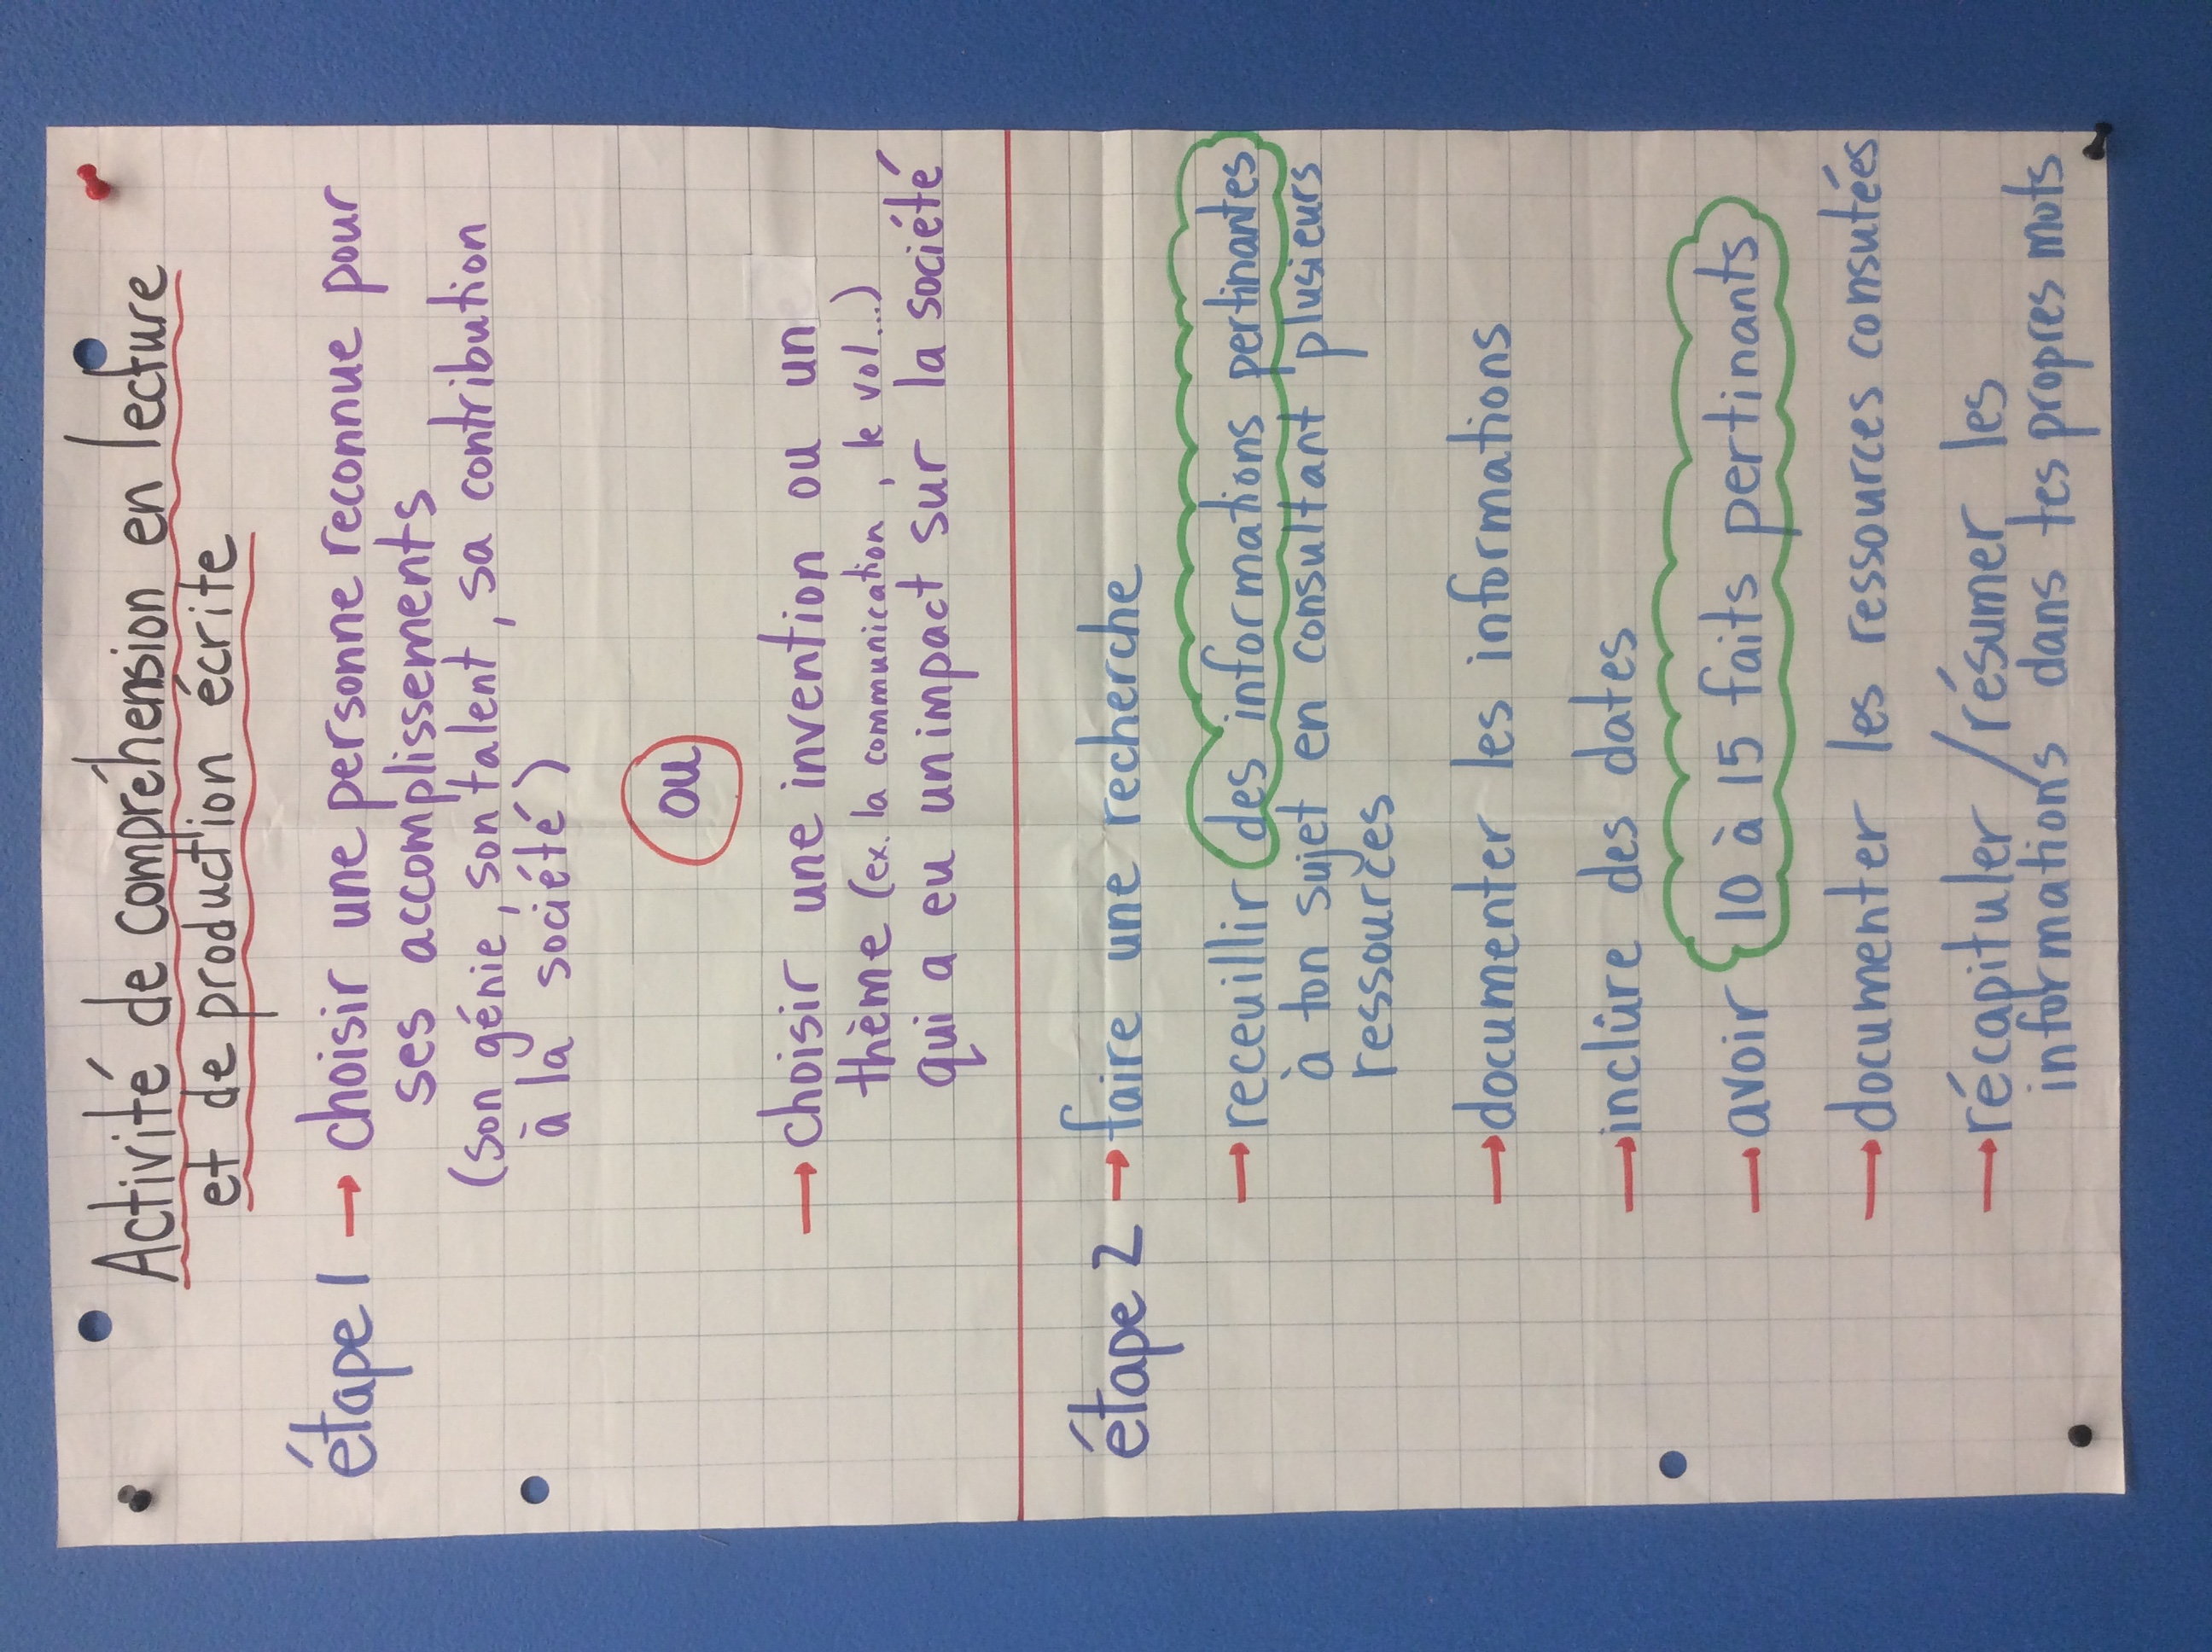 Activité de compréhension en lecture
et de production écrite
étape 1 → choisir une personne reconnue pour
ses accomplissements
(son génie, son talent, sa contribution
à la société)
ou
→ choisir une invention ou un
thème (ex. la communication, le vol...)
qui a eu un impact sur la société
étape 2 → faire une recherche
→ receuillir des informations pertinantes
à ton sujet en consultant plusieurs
ressources
→ documenter les informations
→ inclûre des dates
→ avoir 10 à 15 faits pertinants
→ documenter les ressources consutées
→ récapituler / résumer les
informations dans tes propres mots